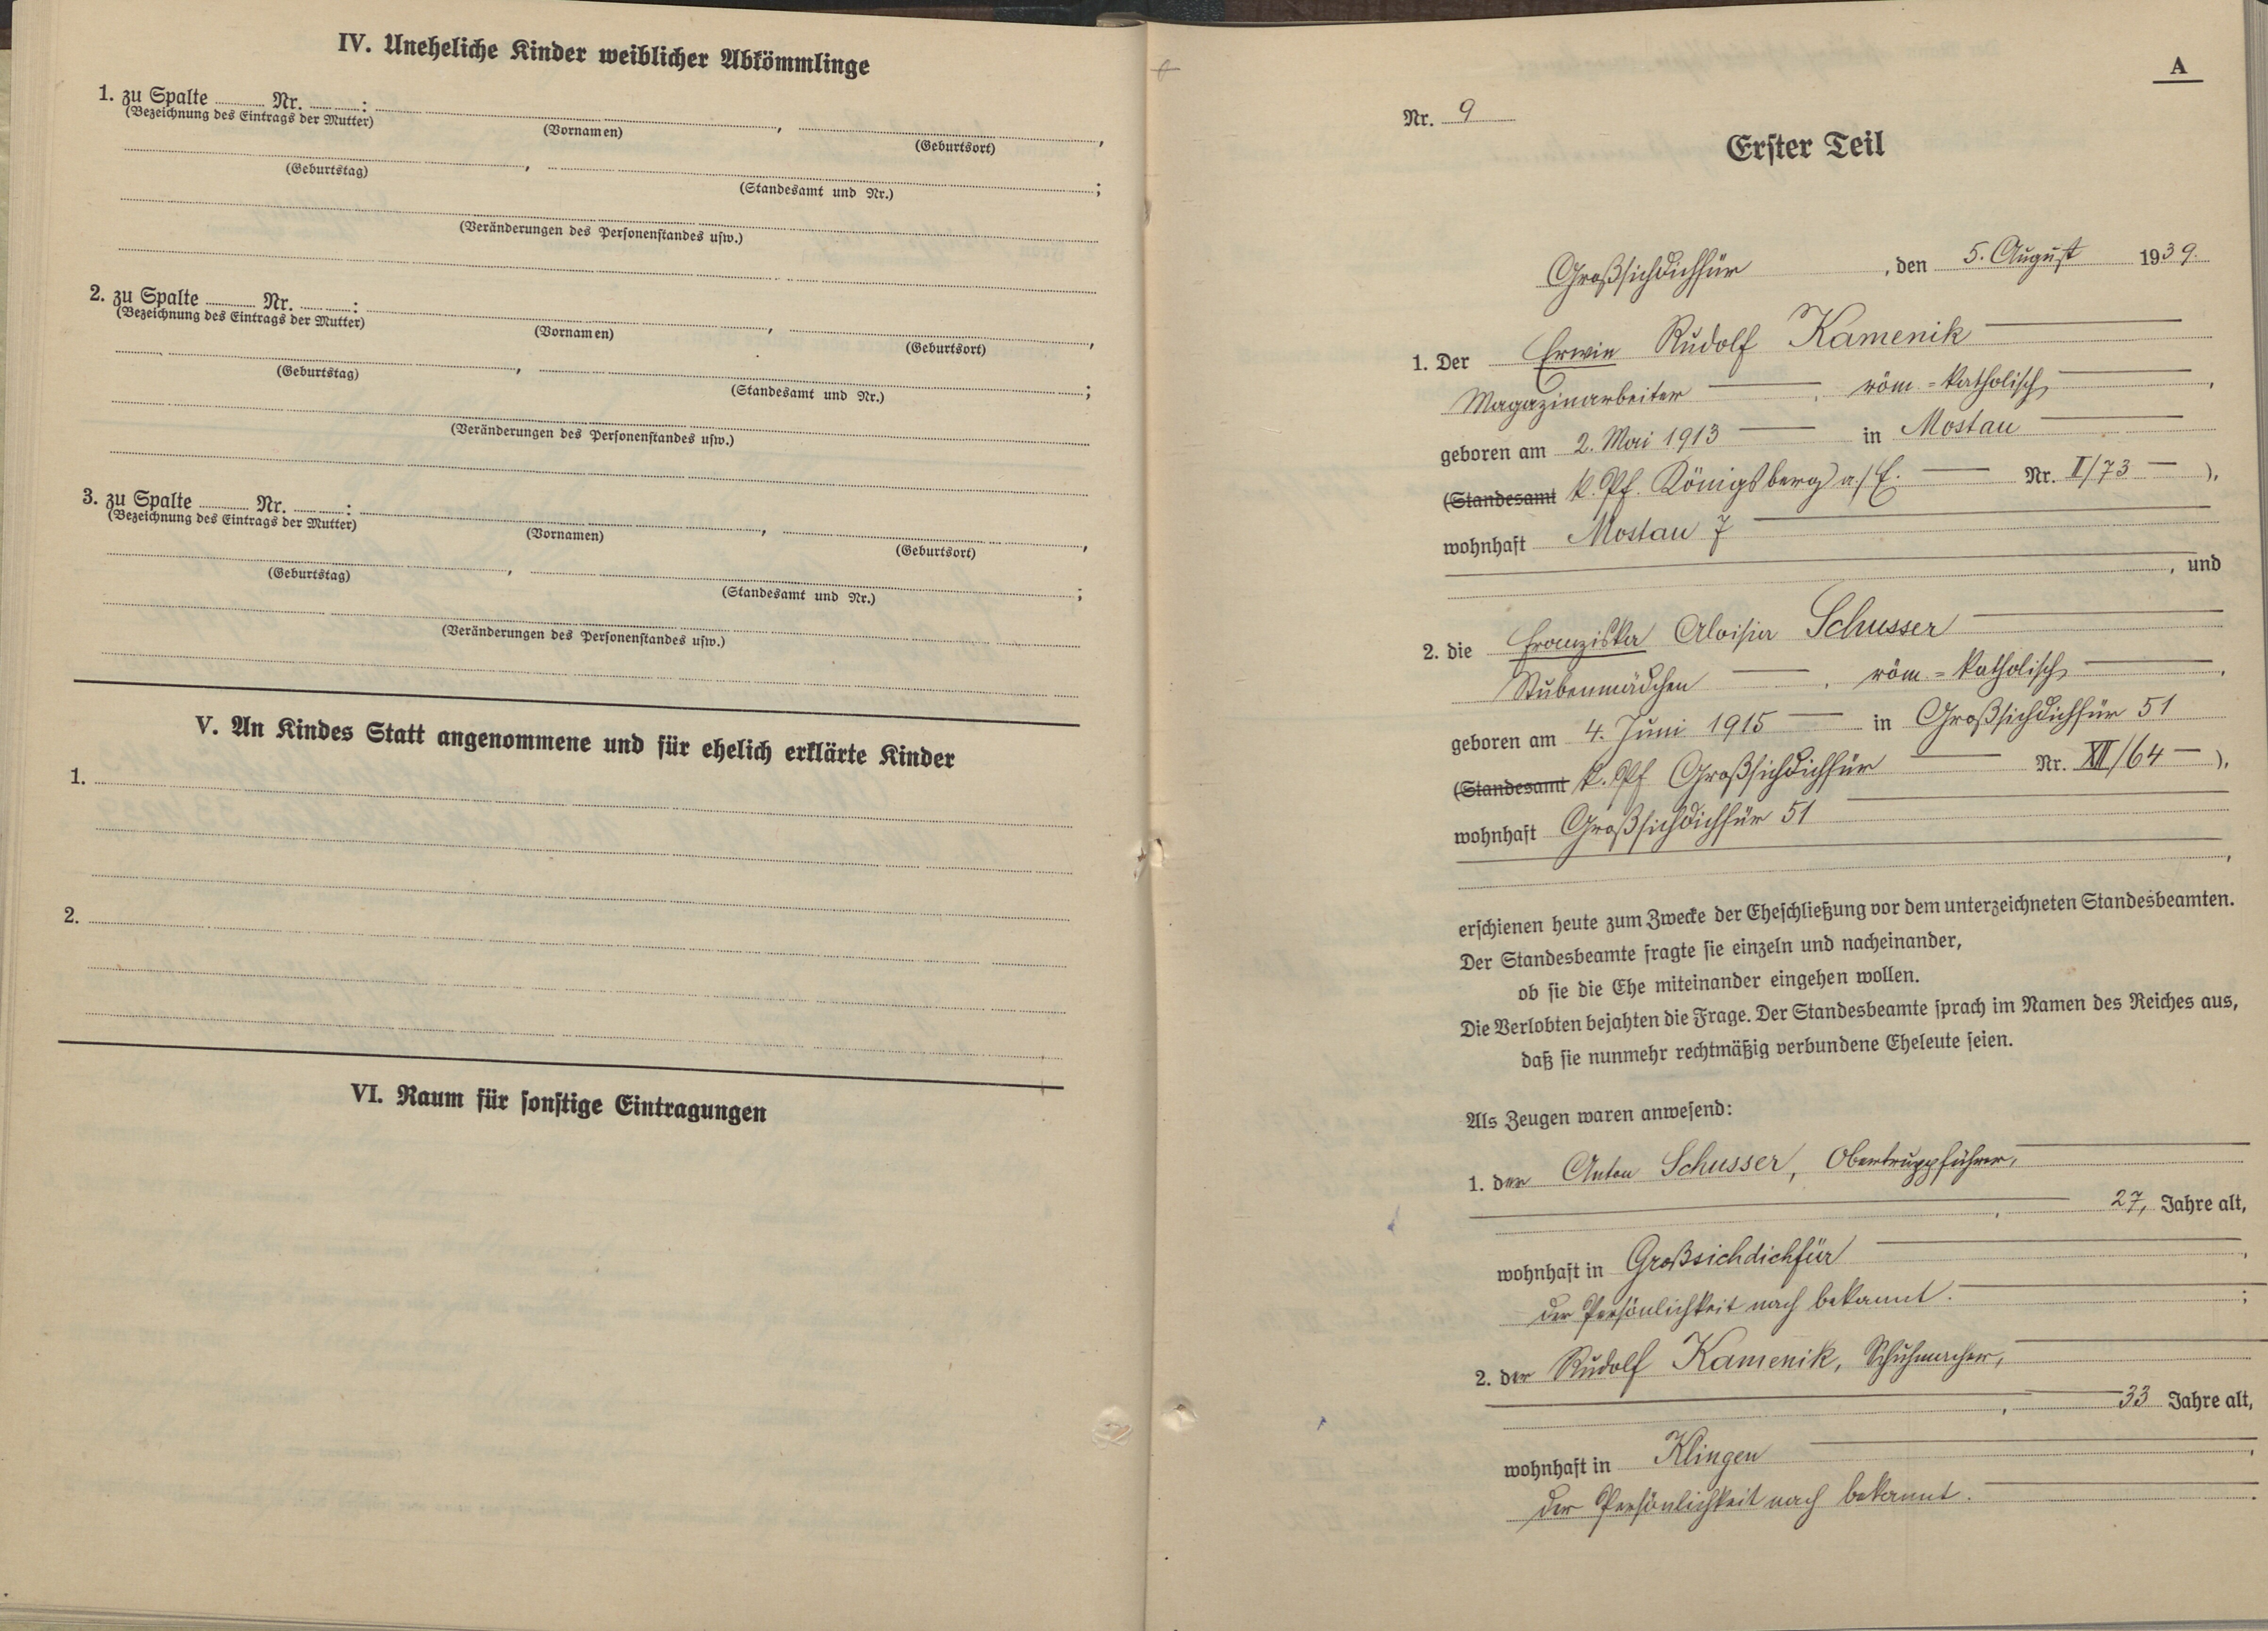 IV. Uneheliche Kinder weiblicher Abkömmlinge
1. zu Spalte Nr. : , ,
(Bezeichnung des Eintrags der Mutter) (Vornamen) (Geburtsort)
, ;
(Geburtstag) (Standesamt und Nr.)
(Veränderungen des Personenstandes usw.)
2. zu Spalte Nr. : , ,
(Bezeichnung des Eintrags der Mutter) (Vornamen) (Geburtsort)
, ;
(Geburtstag) (Standesamt und Nr.)
(Veränderungen des Personenstandes usw.)
3. zu Spalte Nr. : , ,
(Bezeichnung des Eintrags der Mutter) (Vornamen) (Geburtsort)
, ;
(Geburtstag) (Standesamt und Nr.)
(Veränderungen des Personenstandes usw.)
V. An Kindes Statt angenommene und für ehelich erklärte Kinder
1.
2.
VI. Raum für sonstige Eintragungen
A
Nr. 9
Erster Teil
Großsichdichfür, den 5. August 1939.
1. Der Erwin Rudolf Kamenik
Magazinarbeiter, röm.=katholisch,
geboren am 2. Mai 1913 in Mostau
(Standesamt k. Pf. Königsberg a./E. Nr. I/73 ),
wohnhaft Mostau 7
, und
2. die Franziska Aloisia Schusser
Stubenmädchen, röm.=katholisch,
geboren am 4. Juni 1915 in Großsichdichfür 51
(Standesamt k. Pf Großsichdichfür Nr. XII/64 ),
wohnhaft Großsichdichfür 51
,
erschienen heute zum Zwecke der Eheschließung vor dem unterzeichneten Standesbeamten.
Der Standesbeamte fragte sie einzeln und nacheinander,
ob sie die Ehe miteinander eingehen wollen.
Die Verlobten bejahten die Frage. Der Standesbeamte sprach im Namen des Reiches aus,
daß sie nunmehr rechtmäßig verbundene Eheleute seien.
Als Zeugen waren anwesend:
1. der Anton Schusser, Obertruppführer,
, 27, Jahre alt,
wohnhaft in Großsichdichfür
der Persönlichkeit nach bekannt. ;
2. der Rudolf Kamenik, Schuhmacher,
, 33 Jahre alt,
wohnhaft in Klingen
der Persönlichkeit nach bekannt.